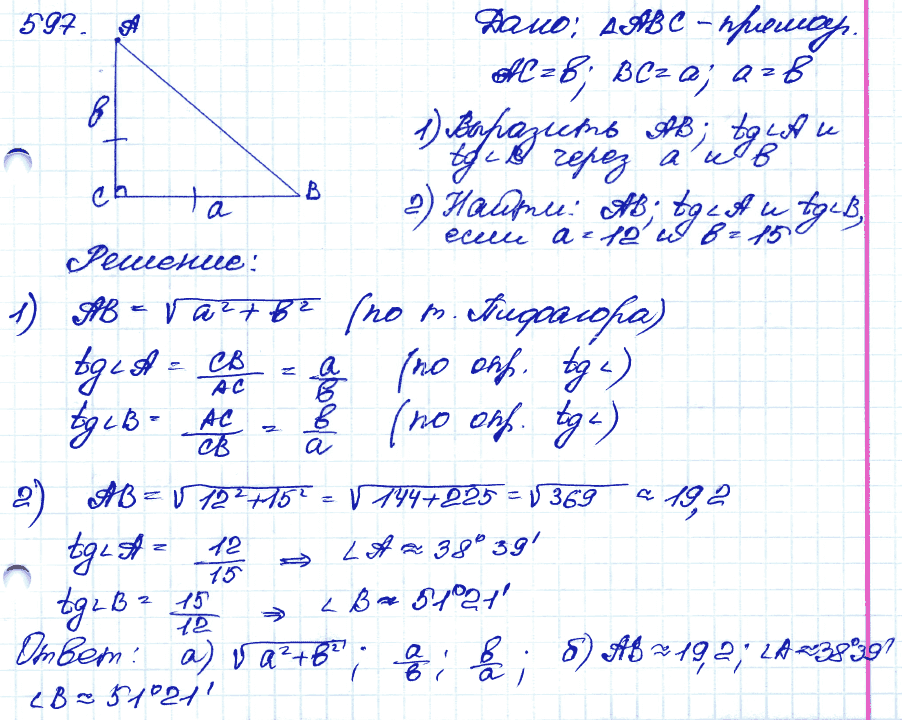 597.
A
Дано: ΔABC – прямоуг.
AC = в; BC = a; a = в
в
1) Выразить AB; tg∠A и
tg∠B через a и в
C
B
a
2) Найти: AB; tg∠A и tg∠B,
если a = 12 и в = 15
Решение:
1) AB = √(a² + в²) (по т. Пифагора)
tg∠A = CB/AC = a/в (по опр. tg∠)
tg∠B = AC/CB = в/a (по опр. tg∠)
2) AB = √(12²+15²) = √(144+225) = √369 ≈ 19,2
tg∠A = 12/15 ⇒ ∠A ≈ 38°39'
tg∠B = 15/12 ⇒ ∠B ≈ 51°21'
Ответ: а) √(a²+в²); a/в; в/a; б) AB ≈ 19,2; ∠A ≈ 38°39'
∠B ≈ 51°21'